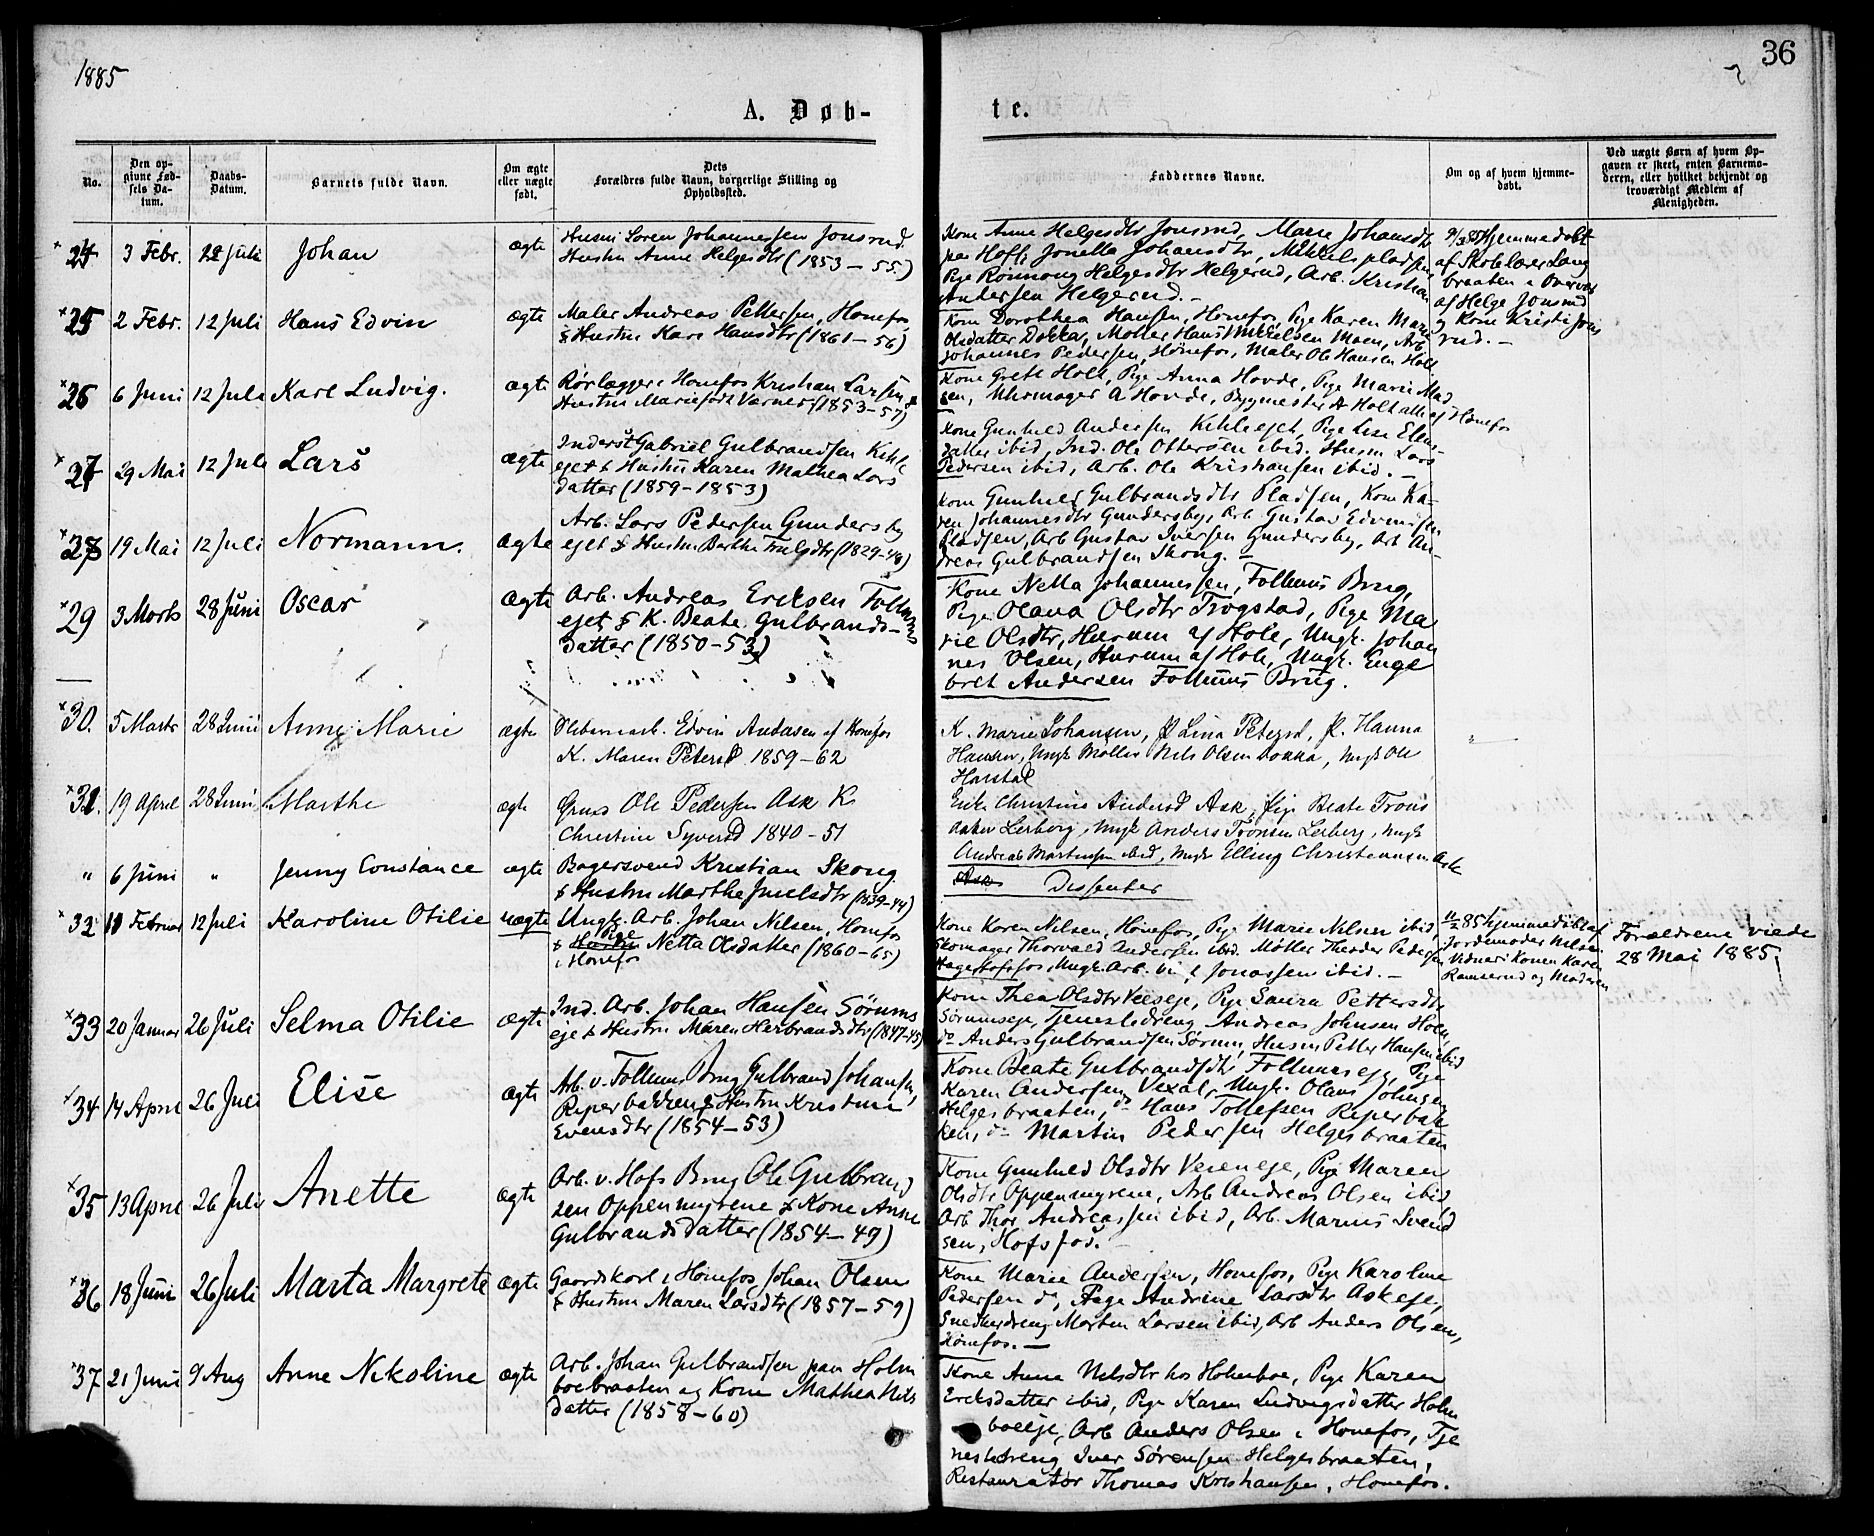 1885
36
A. Døb-
te.
No.
Den op-
givne Fød-
sels Da-
tum.
Daabs-
Datum.
Barnets fulde Navn.
Om ægte
eller uægte
født.
Dets
Forældres fulde Navn, borgerlige Stilling og
Opholdssted.
Faddernes Navne.
Om og af hvem hjemme-
døbt.
Ved uægte Børn af hvem Op-
gaven er skeet, enten Barnemo-
deren, eller hvilket bekjendt og
troværdigt Medlem af
Menigheden.
24 3 Febr. Juli Johan ægte
Husm Soren Johannessen Jonsrud.
Hustru Anne Helgesdtr (1853-55)
Kone Anne Helgesdtr Jonsrud, Marie Johansdtr
paa Hoff, Jonella Johansdtr, Mikkelspladsen
Pige Rønnaug Helgesdtr Helgerud, Arb. Kristian
Andersen Helgerud.-
Hjemmedøbt
af Skolelærer Lang
braaten i Overvær
af Helge Jonsrud
og Kone Kristi Jons
rud.-
25 2 Febr. 12 Juli Hans Edvin ægte
Maler Andreas Pettersen, Hønefos,
& Hustru Kari Hansdtr (1861-56)
Kone Dorothea Hansen, Hønefos, Pige Karen Marie
Olsdatter Dokka, Møller Hans Mikkelsen Moen, Arb.
Johannes Pedersen, Hønefos, Maler Ole Hansen Holt
26 6 Juni 12 Juli Karl Ludvig. ægte
Rørlægger i Hønefos Kristian Larsen &
Hustru Marie født Værner (1853-57)
Kone Grethe Holt, Pige Anna Hovde, Pige Marie Mad
sen, Uhrmager A Hovde, Bygmester A Holt alle af Hønefos
27 29 Mai 12 Juli Lars ægte
Inderst Gabriel Gulbrandsen Kihle
ejet & Hustru Karen Mathea Lars
datter (1859-1853)
Kone Gunhild Andersen Kihleejet, Pige Lise Elens-
datter ibid, Ind. Ole Ottersen ibid. Husm Lars
Pedersen ibid, Arb. Ole Kristiansen ibid.-
28 19 Mai 12 Juli Normann. ægte
Arb. Lars Pedersen Gundersby
ejet & Hustru Berthe Trulsdtr (1829-48)
Kone Gunhild Gulbrandsdtr Pladsen, Kone Ka-
ren Johannesdtr Gundersby, Arb Gustav Edvinsen
Pladsen, Arb Gustav Iversen Gundersby, Arb An-
dreas Gulbrandsen Skong.-
29 3 Marts 28 Juni Oscar ægte
Arb. Andreas Ericksen Follums
ejet & K. Beate Gulbrands-
datter (1850-53)
Kone Netta Johannessen, Follums Brug,
Pige Olava Olsdtr Trøgstad, Pige Ma
rie Olsdtr, Hurum af Hole, Ungk. Johan
nes Olsen, Hurum af Hole, Ungk. Enge
bret Andersen Follums Brug.
30. 5 Marts 28 Juni Anne Marie ægte
Sliberiarb. Edvin Andersen af Hønefos
K. Maren Petersd. 1859-62
K. Marie Johansen, P Lina Petersd, P. Hanna
Hansen, Ungk Møller Nils Olsen Dokka, Ungk Ole
Harstad
31. 19 April 28 Juni Marthe ægte
Ole Pedersen Ask K
Christine Syversd 1840-51
Enke Christine Andersd Ask, Pige Beate Trons
daker Lerberg, Ungk Anders Tronsen Lerberg, Ungk
Andreas Martinsen ibid, Ungk Elling Christiansen Ask
" 6 Juni " Jenny Constance ægte
Bagersvend Kristian Skong
& Hustru Marthe Juelsdtr (1839-44)
Dissenter
32 11 Februar 12 Juli Karoline Otilie uægte
Ungk. Arb. Johan Nilsen, Hønefos
& Hustru Pige Netta Olsdatter (1860-65)
i Hønefos
Kone Karen Nilsen, Hønefos, Pige Marie Nilsen ibid
Skomager Thorvald Andersen ibid. Møller Theodor Pedersen
Hagerhofsfos, Ungk. Arb. Jonassen ibid.-
85 hjemmedøbt af
Jordemoder Nilsen
Vidner: Konen Karen
Ramserud og Moderen
Forældrene viede
28 Mai 1885.
33 20 Januar 26 Juli Selma Otilie ægte
Ind. Arb. Johan Hansen Sørums
eje & Hustru Maren Herbrandsdtr (1847-45)
Kone Thea Olsdtr Veeseje, Pige Laura Pettersdtr
Sørumseje, Tjenestedreng Andreas Johnsen Hoen,
do Anders Gulbrandsen Sørum, Husm Petter Hansen ibid
34 14 April 26 Juli Elise ægte
Arb. v. Follums Brug Gulbrand Johansen,
Reperbakken & Hustru Kristine
Evensdtr (1854-53)
Kone Beate Gulbrandsdtr Follumseje, Pige
Karen Andersen Vexal, Ungk. Olaus Johnsen
Helgesbraaten, do Hans Tollefsen Reperbak
ken, do Martin Pedersen Helgesbraaten
35 13 April 26 Juli Anette ægte
Arb. v. Hofs Brug Ole Gulbrand
sen Oppenmyrene & Kone Anne
Gulbrandsdatter (1854-49)
Kone Gunhild Olsdtr Veieneje, Pige Maren
Olsdtr Oppenmyrene, Arb Andreas Olsen ibid,
Arb Thor Andreassen ibid, Arb. Marius Svend
sen, Hofsfos.-
36 18 Juni 26 Juli Marta Margrete ægte
Gaardskarl i Hønefos Johan Olsen
& Hustru Maren Larsdtr (1857-59)
Kone Marie Andersen, Hønefos, Pige Karoline
Pedersen do, Pige Andrine Larsdtr Askeje,
Snedkerdreng Morten Larsen ibid, Arb Anders Olsen,
Hønefos.-
37 21 Juni 9 Aug Anne Nikoline ægte
Arb. Johan Gulbrandsen paa Holm
boebraaten og Kone Mathea Nils
datter (1858-60)
Kone Anne Nilsdtr hos Holmboe, Pige Karen
Ericksdatter ibid, Pige Karen Ludvigsdatter Holm
boeeje, Arb Anders Olsen i Hønefos, Tje
nestedreng Iver Sørensen Helgesbraaten,
Restauratør Thomas Kristiansen, Hønefos.